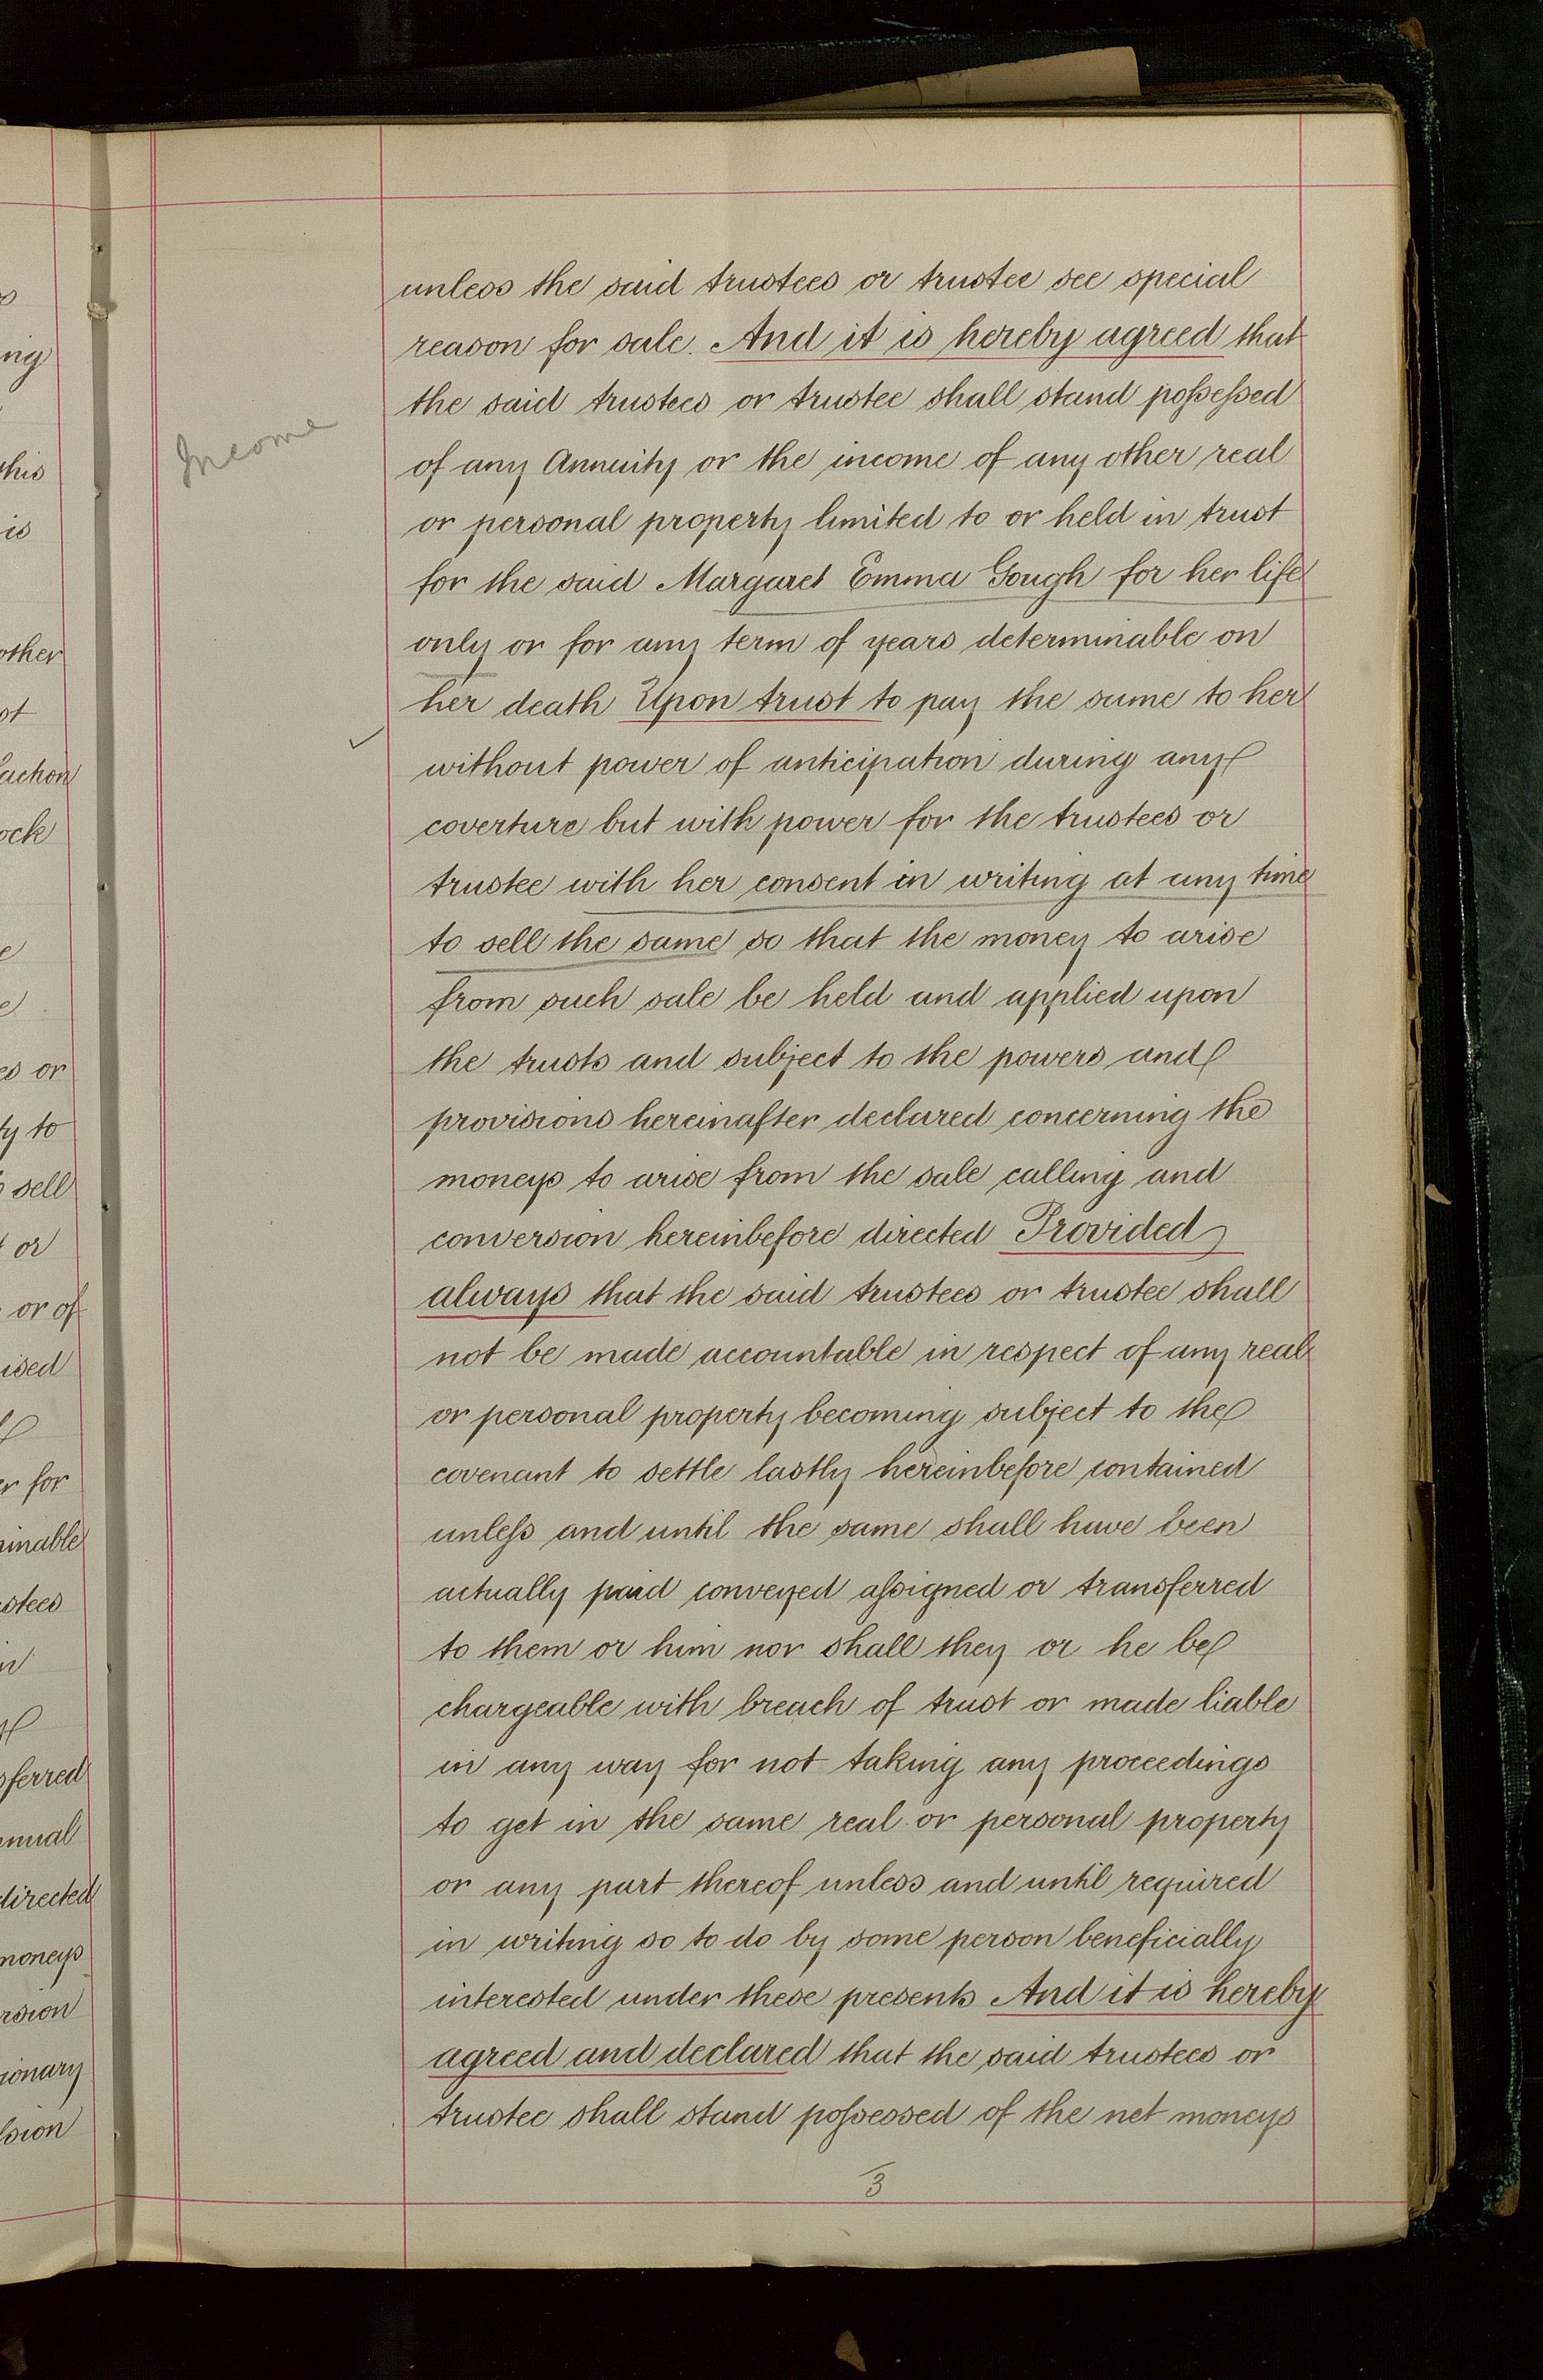 unless the said trustees or trustee see special
reason for sale. And it is hereby agreed that
the said trustees or trustee shall stand possessed
Income
of any Annuity or the income of any other real
or personal property limited to or held in trust
for the said Margaret Emma Gough for her life
only or for any term of years determinable on
her death Upon trust to pay the same to her
without power of anticipation during any
coverture but with power for the trustees or
trustee with her consent in writing at any time
to sell the same so that the money to arise
from such sale be held and applied upon
the trusts and subject to the powers and
provisions hereinafter declared concerning the
moneys to arise from the sale calling and
conversion hereinbefore directed Provided
always that the said trustees or trustee shall
not be made accountable in respect of any real
or personal property becoming subject to the
covenant to settle lastly hereinbefore contained
unless and until the same shall have been
actually paid conveyed assigned or transferred
to them or him nor shall they or he be
chargeable with breach of trust or made liable
in any way for not taking any proceedings
to get in the same real or personal property
or any part thereof unless and until required
in writing so to do by some person beneficially
interested under these presents And it is hereby
agreed and declared that the said trustees or
trustee shall stand possessed of the net moneys
3